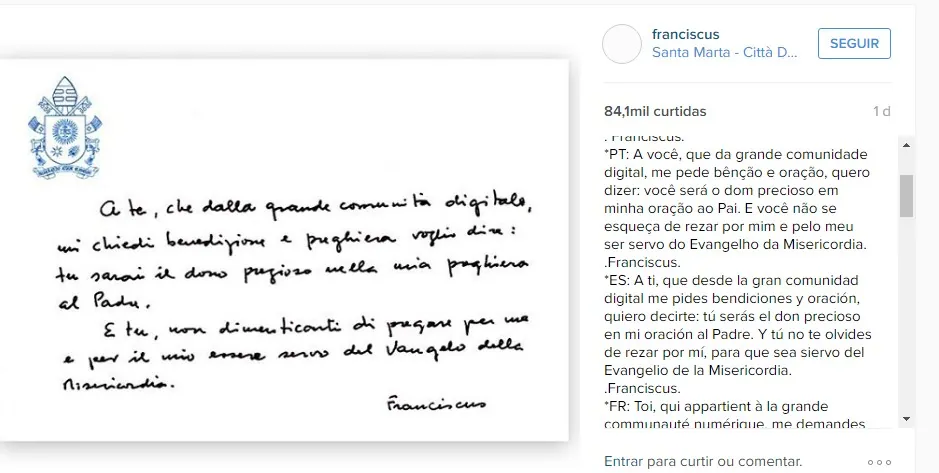 A te, che dalla grande comunità digitale,
mi chiedi benedizione e preghiera voglio dire:
tu sarai il dono prezioso nella mia preghiera
al Padre.
E tu, non dimenticarti di pregare per me
e per il mio essere servo del Vangelo della
Misericordia.
Franciscus
franciscus
Santa Marta - Città D...
SEGUIR
84,1mil curtidas
1 d
.Franciscus.
*PT: A você, que da grande comunidade
digital, me pede bênção e oração, quero
dizer: você será o dom precioso em
minha oração ao Pai. E você não se
esqueça de rezar por mim e pelo meu
ser servo do Evangelho da Misericordia.
.Franciscus.
*ES: A ti, que desde la gran comunidad
digital me pides bendiciones y oración,
quiero decirte: tú serás el don precioso
en mi oración al Padre. Y tú no te olvides
de rezar por mí, para que sea siervo del
Evangelio de la Misericordia.
.Franciscus.
*FR: Toi, qui appartient à la grande
communauté numérique, me demandes
Entrar para curtir ou comentar.